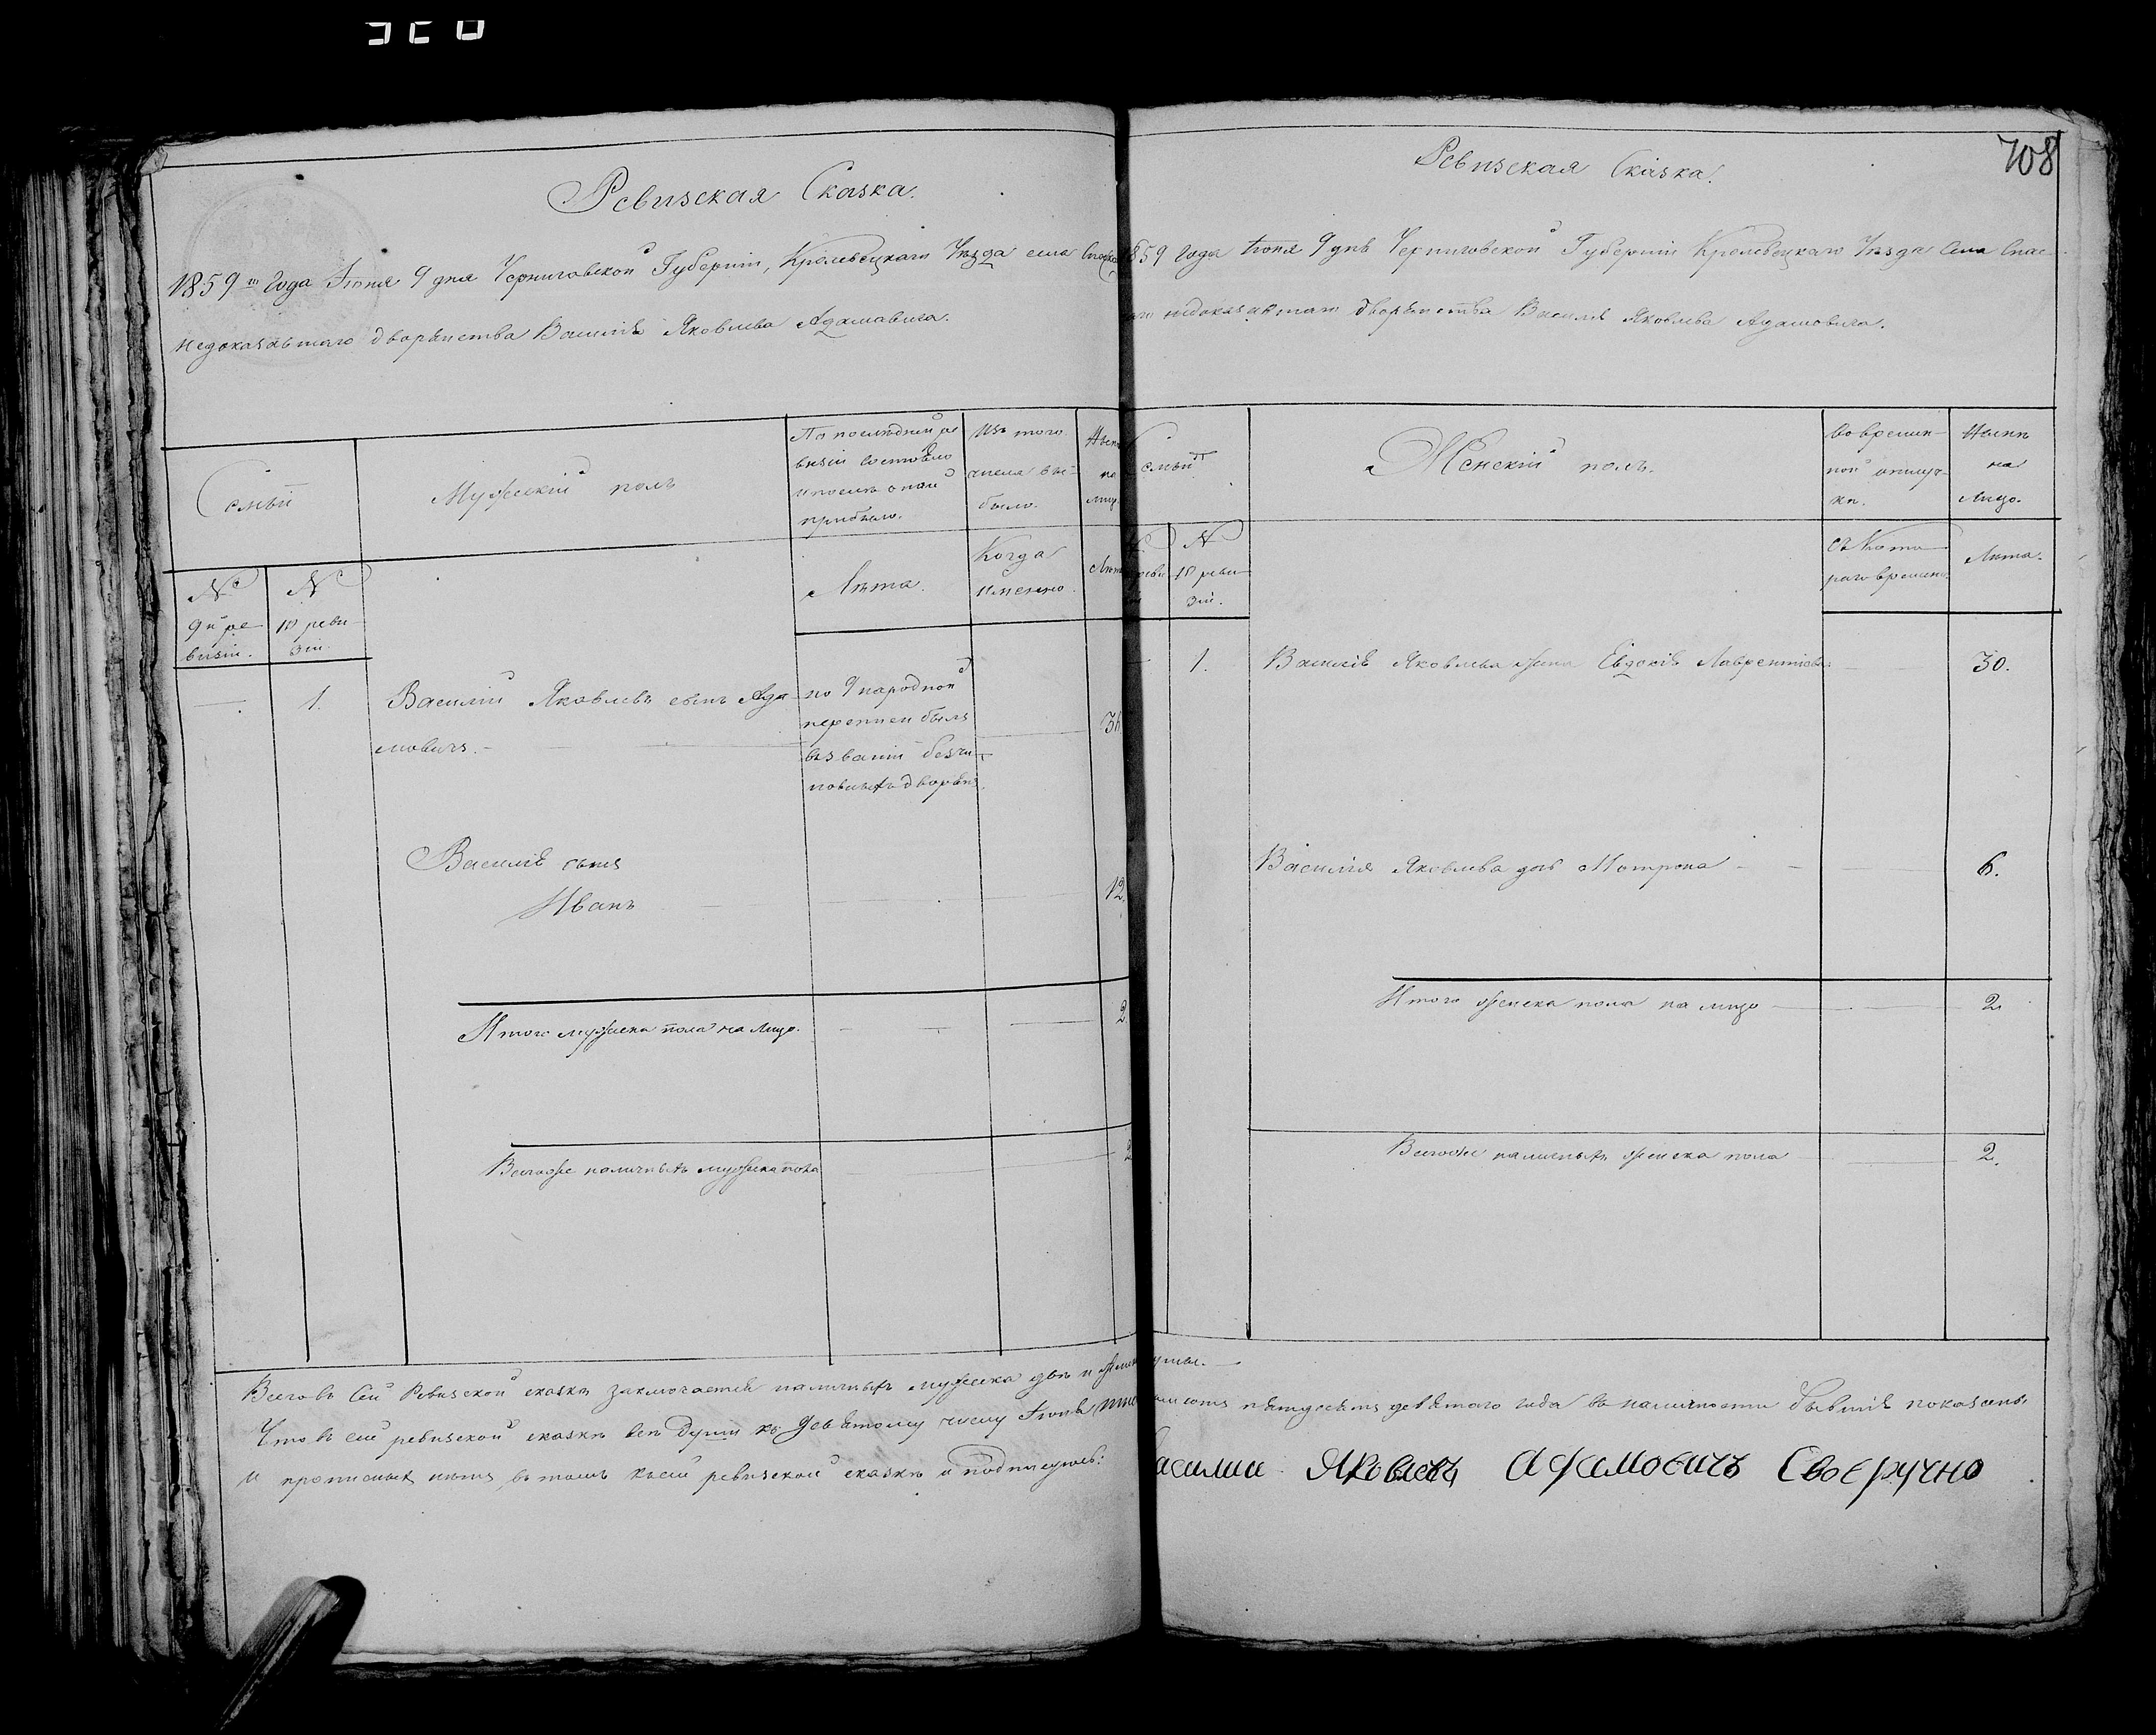 708
Ревизская Сказка.
1859го Года Іюня 9 дня Черниговской Губерніи, Кролевецкаго Уѣзда села
недоказавшаго дворянства Василія Яковлева Адамовича.
Семьи
Мужескій полъ
По послѣдней ре
визіи состояло
и послѣ оной
прибыло.
Изъ того
числа вы-
было.
Нынѣ
на
лицо
Лѣта.
Когда
именно.
Лѣта
№
9й ре-
визіи.
№
10 реви-
зіи.
1.
Василій Яковлевъ сынъ Ада-
мовичъ.
по 9 народной
переписи былъ
въ званіи безчи-
новныхъ дворянъ.
Василія сынъ
Иванъ
12.
Итого мужеска пола на лицо.
2
Всего же наличныхъ мужеска пола
2
Ревизская Сказка.
1859 Года Іюня 9 дня Черниговской Губерніи Кролевецкаго Уѣзда Села Спас-
недоказавшаго дворянства Василія Яковлева Адамовича.
Семьи
Женскій полъ.
Во времен-
ной отлуч-
ки.
Нынѣ
на
Лицо.
№
10 реви-
зіи.
Съ кото-
раго времени.
Лѣта.
1.
Василія Яковлева жена Евдокія Лаврентіева
30.
Василія Яковлева дочь Мотрона
6.
Итого женска пола на лицо
2.
Всего же наличныхъ женска пола
2.
Всего въ Сей Ревизской сказкѣ заключается наличныхъ мужеска двѣ и женска души.
Что въ сей ревизской сказкѣ всѣ Души къ девятому числу Іюня пятдесятъ девятаго года въ наличности бывшія показаны
и прописныхъ нѣтъ, въ томъ къ сей ревизской сказкѣ и подписуюсь: Василий Яковлевъ Адамовичъ Своеручно